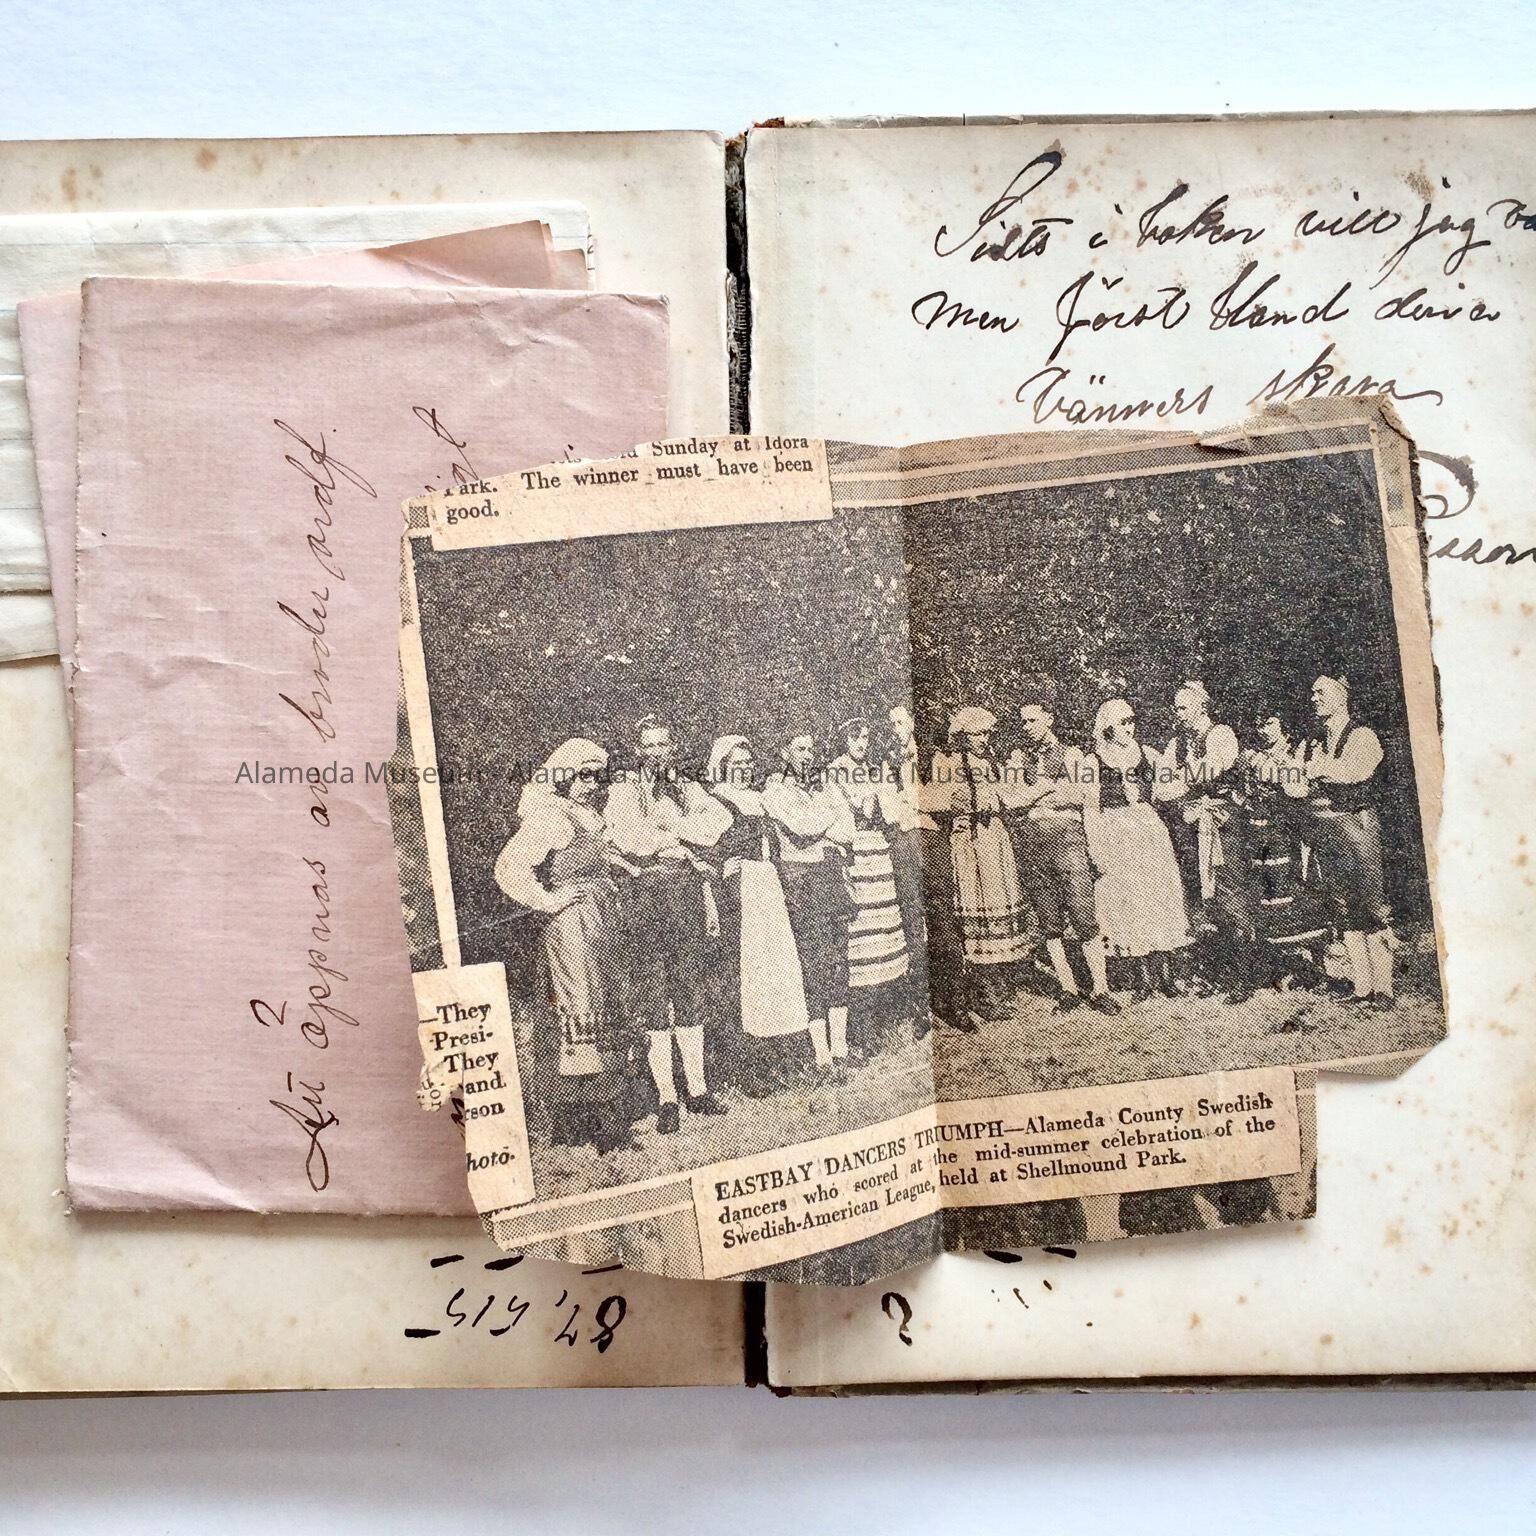 Sists i boken vill jag va
men först bland dina
Vänners skara
Att öppnas av broder ordf.
Sunday at Idora
Park. The winner must have been
good.
—They
Presi-
They
and
rson
hoto.
EASTBAY DANCERS TRIUMPH—Alameda County Swedish
dancers who scored at the mid-summer celebration of the
Swedish-American League, held at Shellmound Park.
Alameda Museum - Alameda Museum - Alameda Museum - Alameda Museum
?